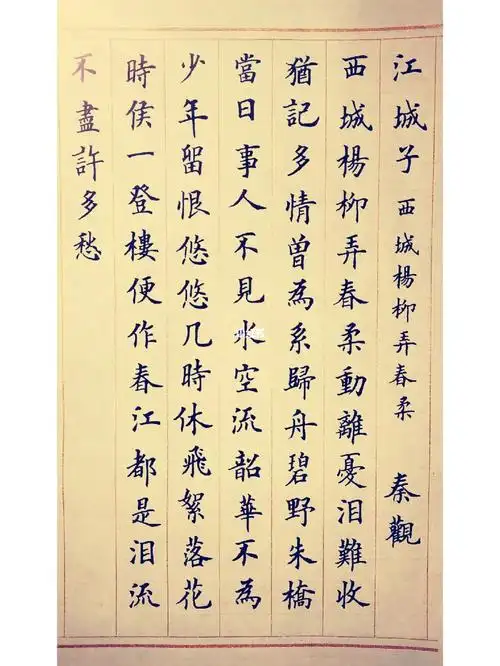 江城子 西城楊柳弄春柔 秦觀
西城楊柳弄春柔動離憂泪難收
猶記多情曾為系歸舟碧野朱橋
當日事人不見水空流韶華不為
少年留恨悠悠几時休飛絮落花
時侯一登樓便作春江都是泪流
不盡許多愁